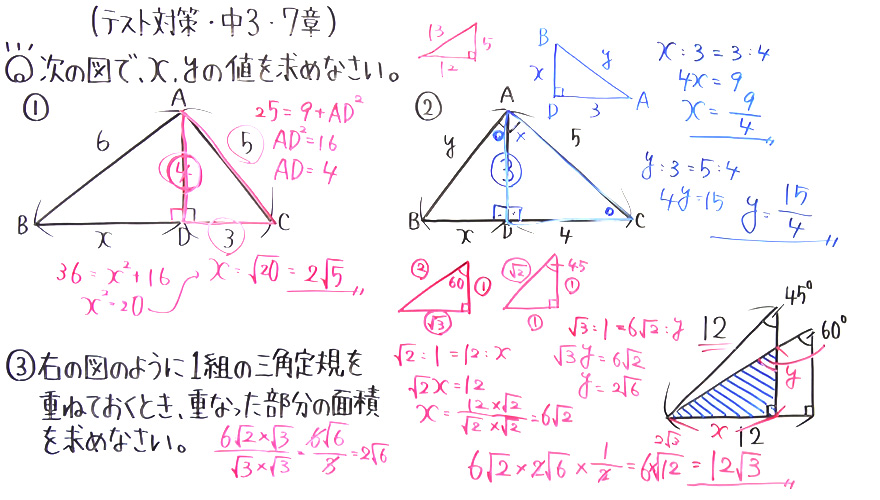 (テスト対策・中3・7章)
次の図で、x, yの値を求めなさい。
①
A
6
5
4
B
x
D
3
C
25=9+AD²
AD²=16
AD=4
36=x²+16
x²=20
x=√20=2√5
13
5
12
②
A
y
5
3
B
x
D
4
C
B
x
y
D
3
A
x:3=3:4
4x=9
x=9/4
y:3=5:4
4y=15
y=15/4
③右の図のように1組の三角定規を
重ねておくとき、重なった部分の面積
を求めなさい。
②
60
①
√3
√2
45
①
①
√2:1=12:x
√2x=12
x=12×√2/√2×√2=6√2
√3:1=6√2:y
√3y=6√2
y=2√6
6√2×√3/√3×√3=6√6/3=2√6
12
45°
60°
y
x
12
6√2×2√6×1/2=6√12=12√3
2√3